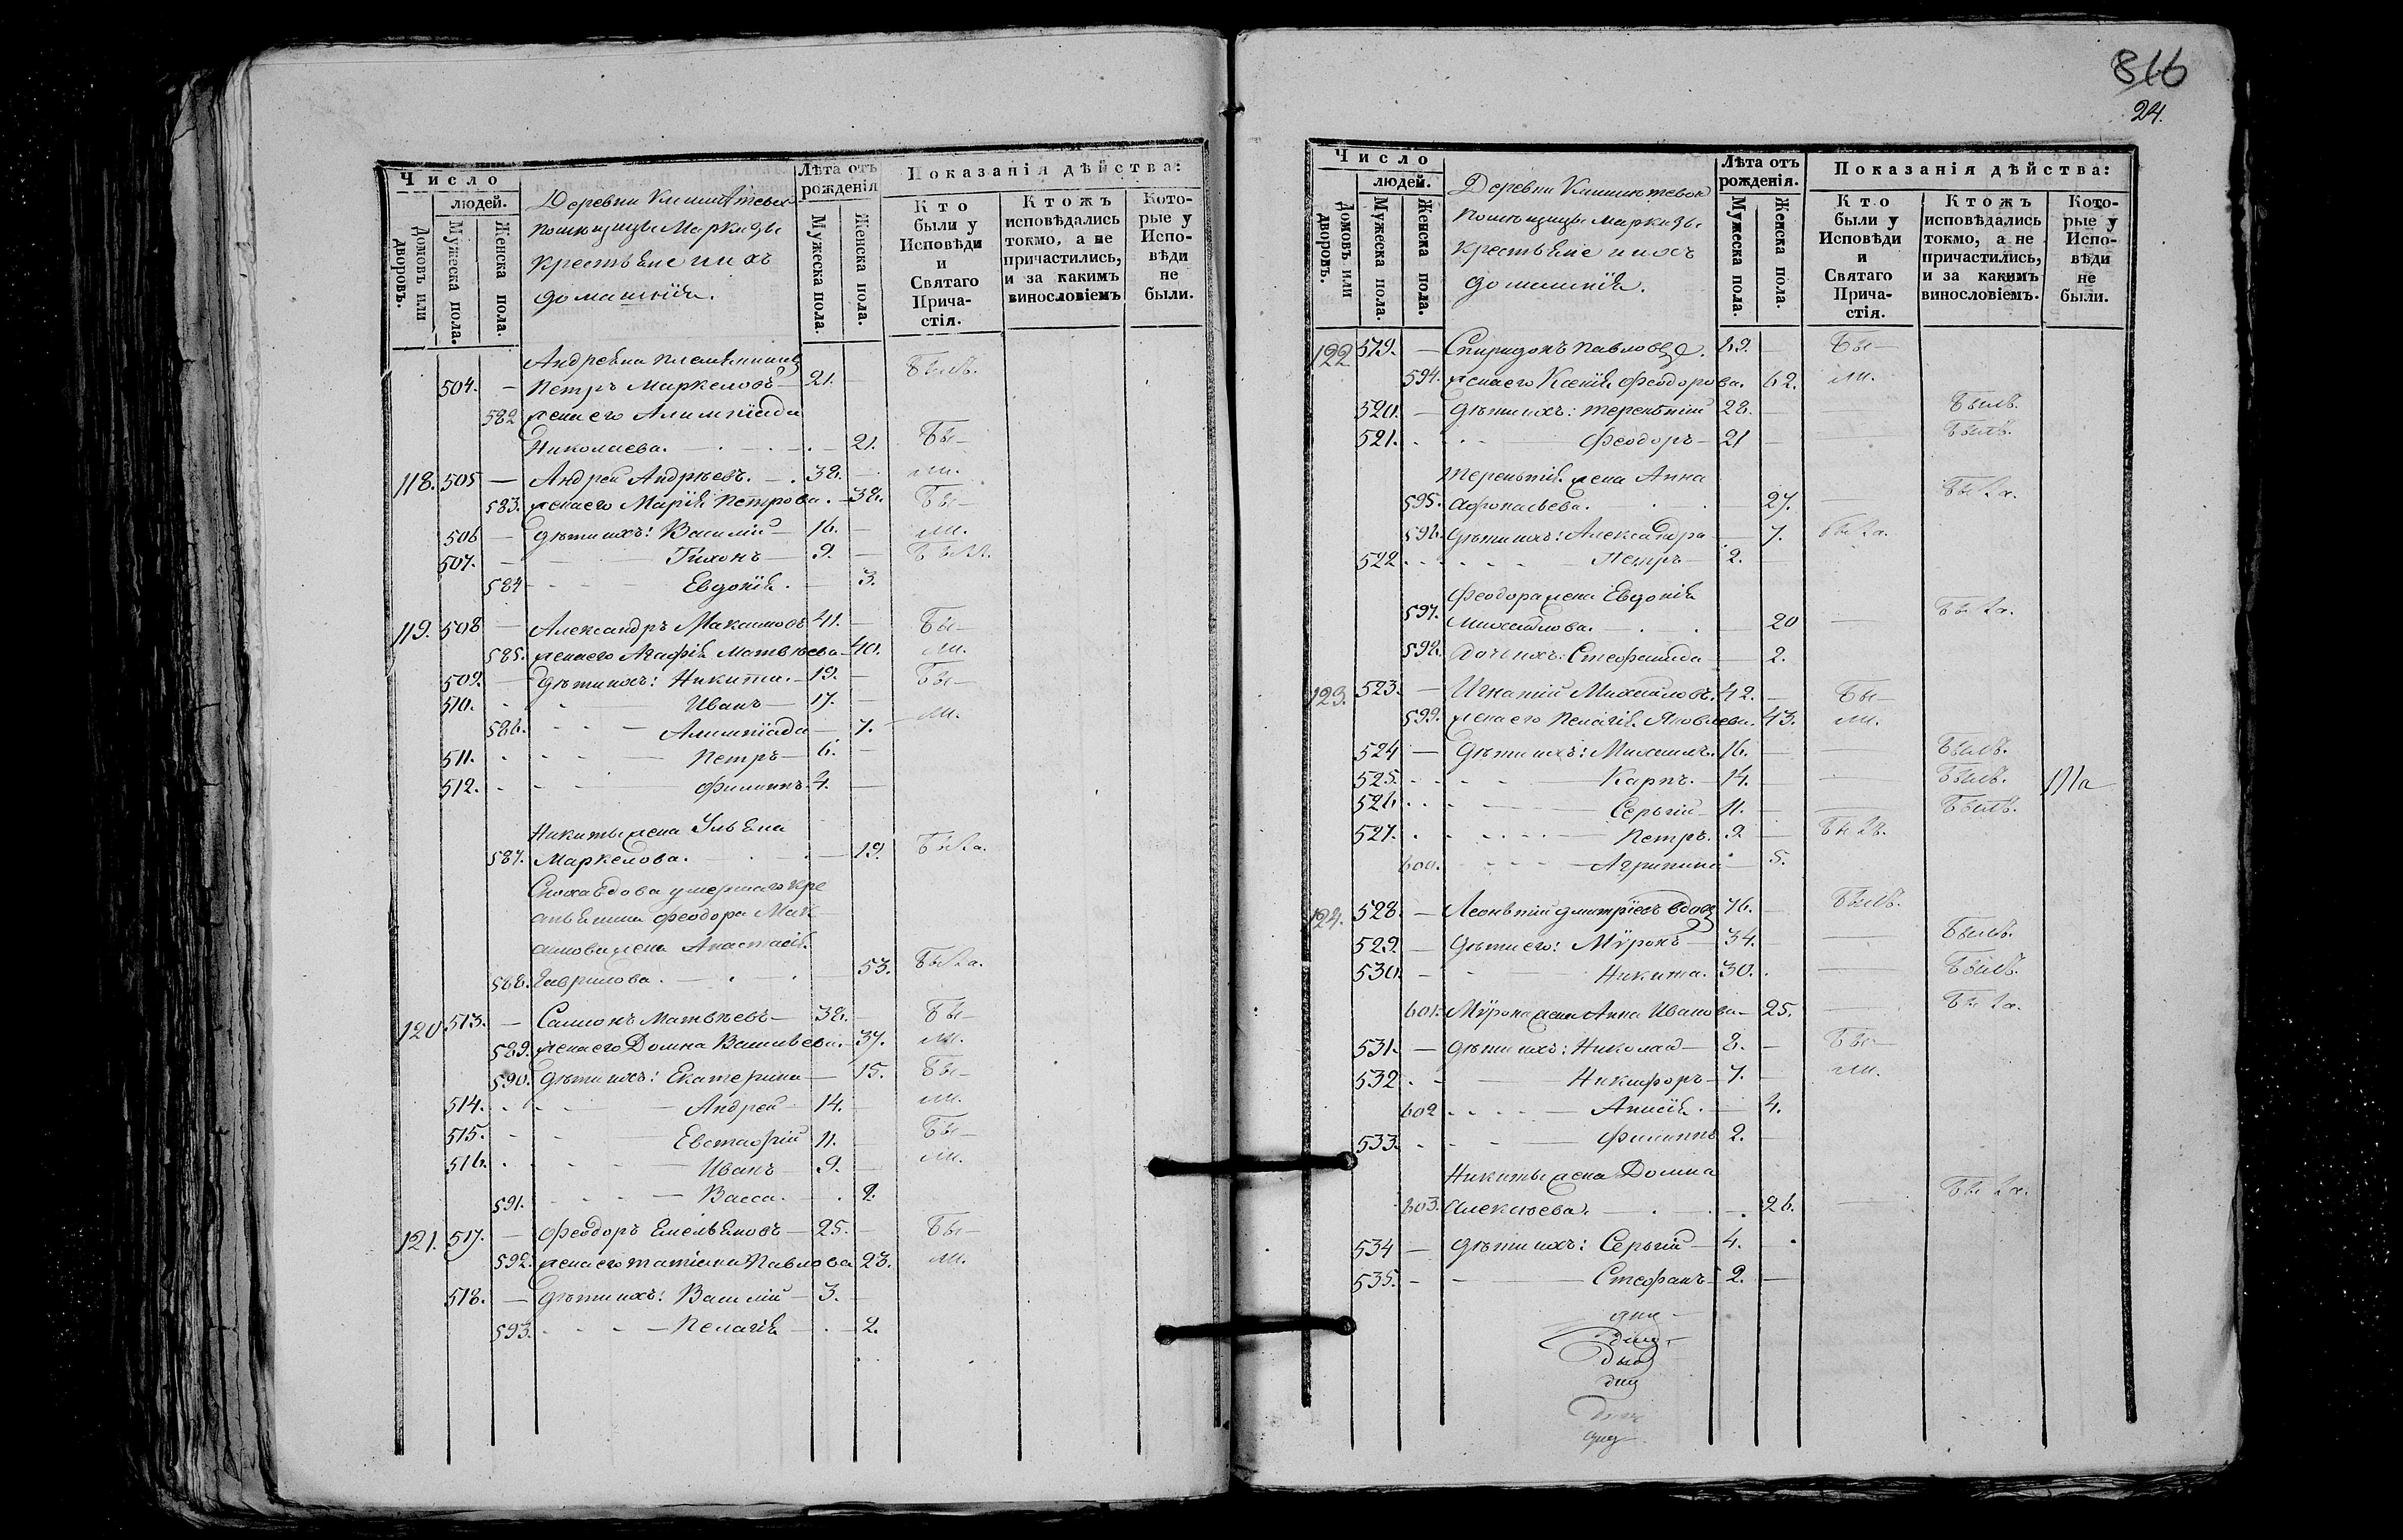 Число
людей.
Домовъ или дворовъ.
Мужеска пола.
Женска пола.
Деревни
помѣщицы Маркизы
крестьяне и ихъ
домашнія.
Лѣта отъ рожденія
Мужеска пола.
Женска пола.
Показанія дѣйства:
Кто были у Исповѣди и Святаго Прича-стія.
Ктожъ исповѣдались токмо, а не причастились, и за какимъ винословіемъ
Кото-рые у Испо-вѣди не были.
Андреяна племянникъ
504. — Петръ Маркеловъ — 21. — Былъ.
582 жена его Алимпіада
Николаева. — 21. Бы—
118. 505 — Андрей Андрѣевъ. — 38. — ли.
583. жена его Марія Петрова. — 38. Бы—
506 — дѣти ихъ: Василій — 16. — ли.
507. — Тихонъ — 9. —
584 — Евдокія. — 3.
119. 508 — Александръ Максимовъ 41. — Бы—
585. жена его Агафія Матвѣева — 40. ли.
509. — дѣти ихъ: Никита. — 19. — Бы—
510. Иванъ — 17. —
586. Алимпіада — 7. — ли.
511. Петръ — 6. —
512. Филиппъ. 4. —
Никиты жена Ульяна
587. Маркелова. — 19. Была.
Сноха вдова умершаго кре
стьянина Феодора Мак
симова жена Анастасія
588. Гаврилова. — 53. Была.
120 513. — Самсонъ Матвѣевъ — 38. — Бы—
589. жена его Домна Васильева. — 37. ли.
590. дѣти ихъ: Екатерина — 15. Бы—
514. Андрей 14. — ли.
515. Евстафій 11. — Бы—
516. Иванъ — 9. — ли.
591. Васса. — 2.
121. 517. — Феодоръ Емельяновъ — 25. — Бы—
592. жена его Татіана Павлова 23. ли.
518. — дѣти ихъ: Василій — 3. —
593. Пелагія — 2.
816
24.
Число
людей.
Домовъ или дворовъ.
Мужеска пола.
Женска пола.
Деревни
помѣщицы Маркизы
крестьяне и ихъ
домашнія.
Лѣта отъ рожденія.
Мужеска пола.
Женска пола.
Показанія дѣйства:
Кто были у Исповѣди и Святаго Прича-стія.
Ктожъ исповѣдались токмо, а не причастились, и за какимъ винословіемъ.
Кото-рые у Испо-вѣди не были.
122 519. — Спиридонъ Павловъ. — Бы—
594. жена его Ксенія Феодорова. 62. ли.
520. — дѣти ихъ: Терентій 28. — Былъ.
521. Феодоръ — 21 — Былъ.
Терентія жена Анна
595. Афонасьева. — 27. — Была.
596. дѣти ихъ: Александра — 7. Была.
522. Петръ — 2. —
Феодора жена Евдокія
597. Михайлова. — 20 — Была.
598. дочь ихъ: Стефанида — 2.
123. 523. — Игнатій Михайловъ. 42. — Бы—
599. жена его Пелагія Яковлева. 43. ли.
524 — дѣти ихъ: Михаилъ. 16. — Былъ.
525. Карпъ. — 14. — Былъ.
526. Сергій — 11. — Былъ.
527. Петръ. 9. — Былъ.
600. Агрипина — 5.
124. 528. — Леонтій Дмитріевъ вдовъ 76. — Былъ.
529. — дѣти его: Мѵронъ — 34. — Былъ.
530. — Никита. 30. — Былъ.
601. Мѵрона жена Анна Иванова — 25. — Была.
531. — дѣти ихъ: Николай — 8. — Бы—
532. Никифоръ — 7. — ли.
602 Анисія. — 4.
533. Филиппъ 2. —
Никиты жена Домна
603. Алексѣева. — 26. — Была.
534 — дѣти ихъ: Сергій — 4. —
535. — Стефанъ — 2. —